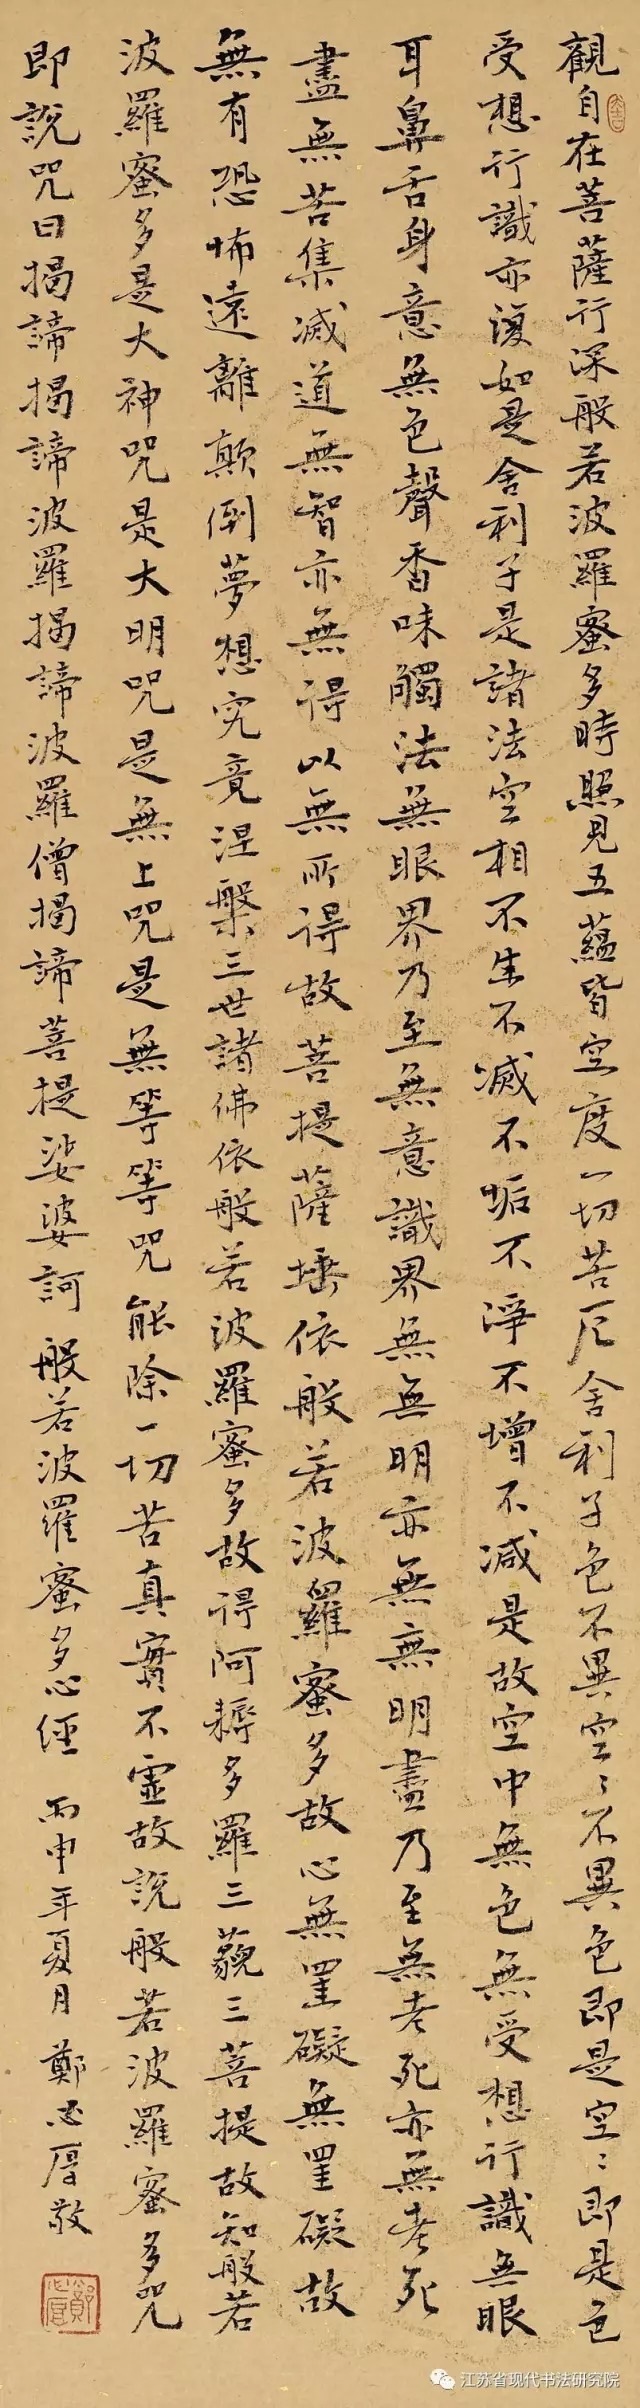 觀自在菩薩行深般若波羅蜜多時照見五蘊皆空度一切苦厄舍利子色不異空〻不異色即是空〻即是色
受想行識亦復如是舍利子是諸法空相不生不滅不垢不淨不增不減是故空中無色無受想行識無眼
耳鼻舌身意無色聲香味觸法無眼界乃至無意識界無無明亦無無明盡乃至無老死亦無老死
盡無苦集滅道無智亦無得以無所得故菩提薩埵依般若波羅蜜多故心無罣礙無罣礙故
無有恐怖遠離顛倒夢想究竟涅槃三世諸佛依般若波羅蜜多故得阿耨多羅三藐三菩提故知般若
波羅蜜多是大神咒是大明咒是無上咒是無等等咒能除一切苦真實不虛故說般若波羅蜜多咒
即說咒曰揭諦揭諦波羅揭諦波羅僧揭諦菩提娑婆訶 般若波羅蜜多心經 丙申年夏月 鄭志厚敬
江苏省现代书法研究院